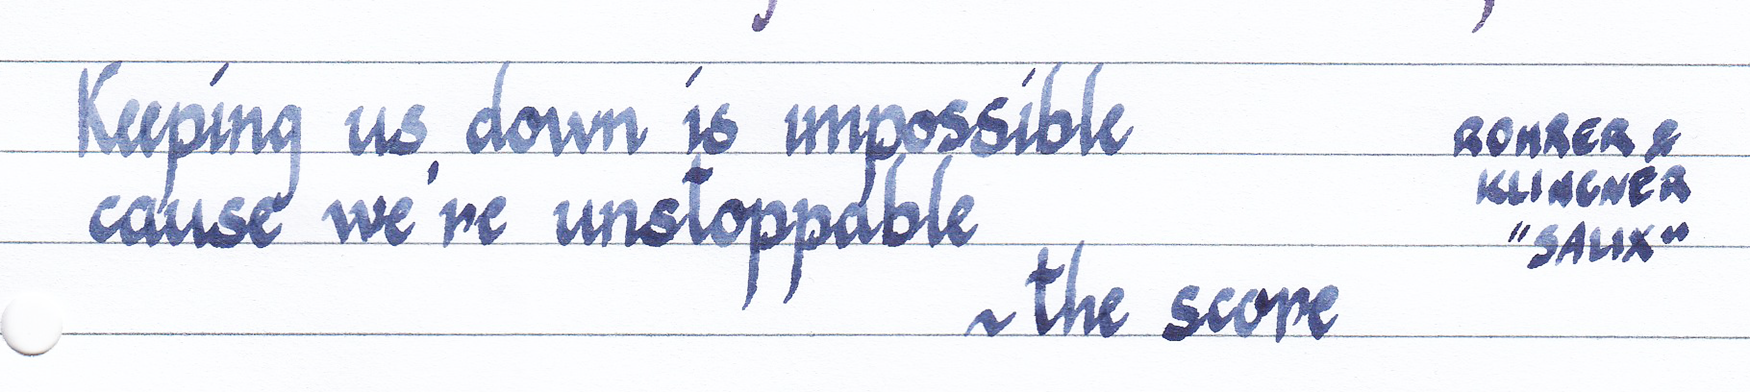 Keeping us down is impossible
cause we're unstoppable
~ the score
ROHRER &
KLINGNER
"SALIX"